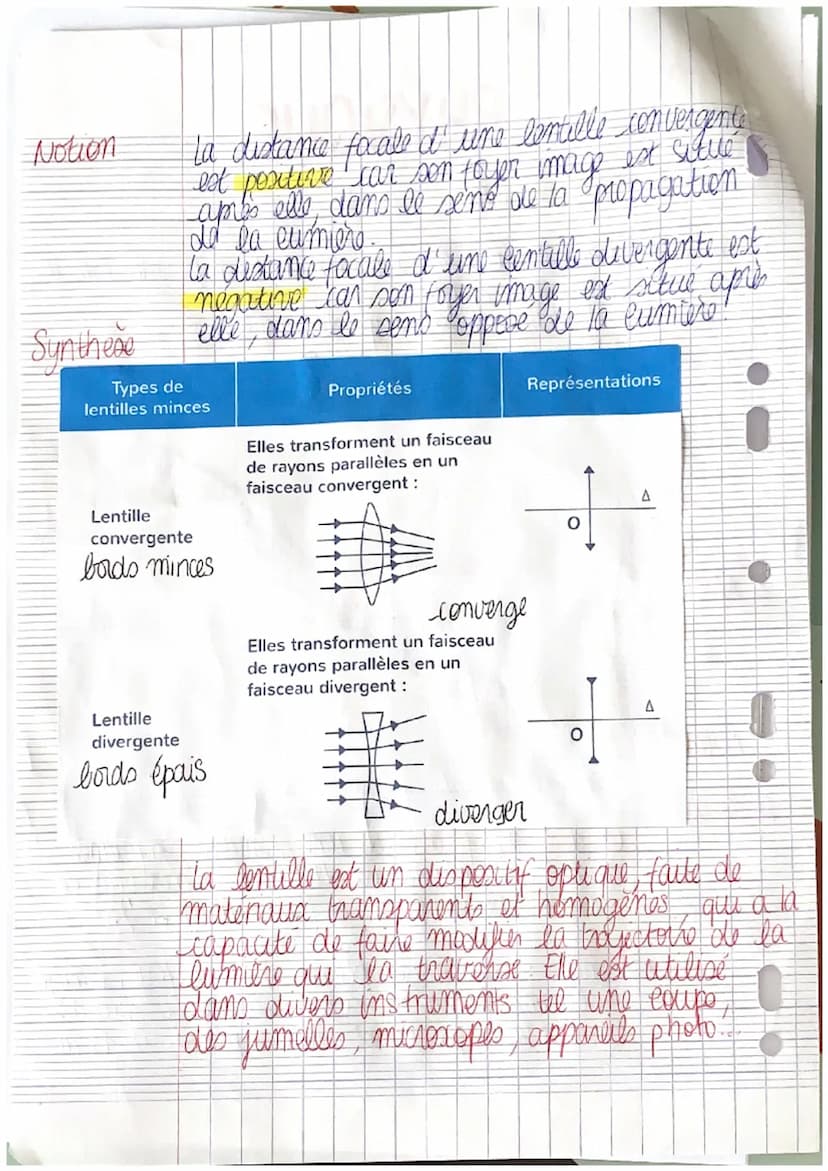 Notion
La distance focale d'une lentille convergente
est positive car son foyer image est situé
après elle, dans le sens de la propagation
de la lumière.
La distance focale d'une lentille divergente est
négative car son foyer image est situé après
elle, dans le sens opposé de la lumière.
Synthèse
Types de lentilles minces
Propriétés
Représentations
Elles transforment un faisceau
de rayons parallèles en un
faisceau convergent :
Lentille
convergente
bords minces
O
Δ
converge
Elles transforment un faisceau
de rayons parallèles en un
faisceau divergent :
Lentille
divergente
bords épais
O
Δ
diverger
La lentille est un dispositif optique, faite de
matériaux transparents et homogènes, qui a la
capacité de faire modifier la trajectoire de la
lumière qui la traverse. Elle est utilisé
dans divers instruments tel une loupe,
des jumelles, microscopes, appareils photo...